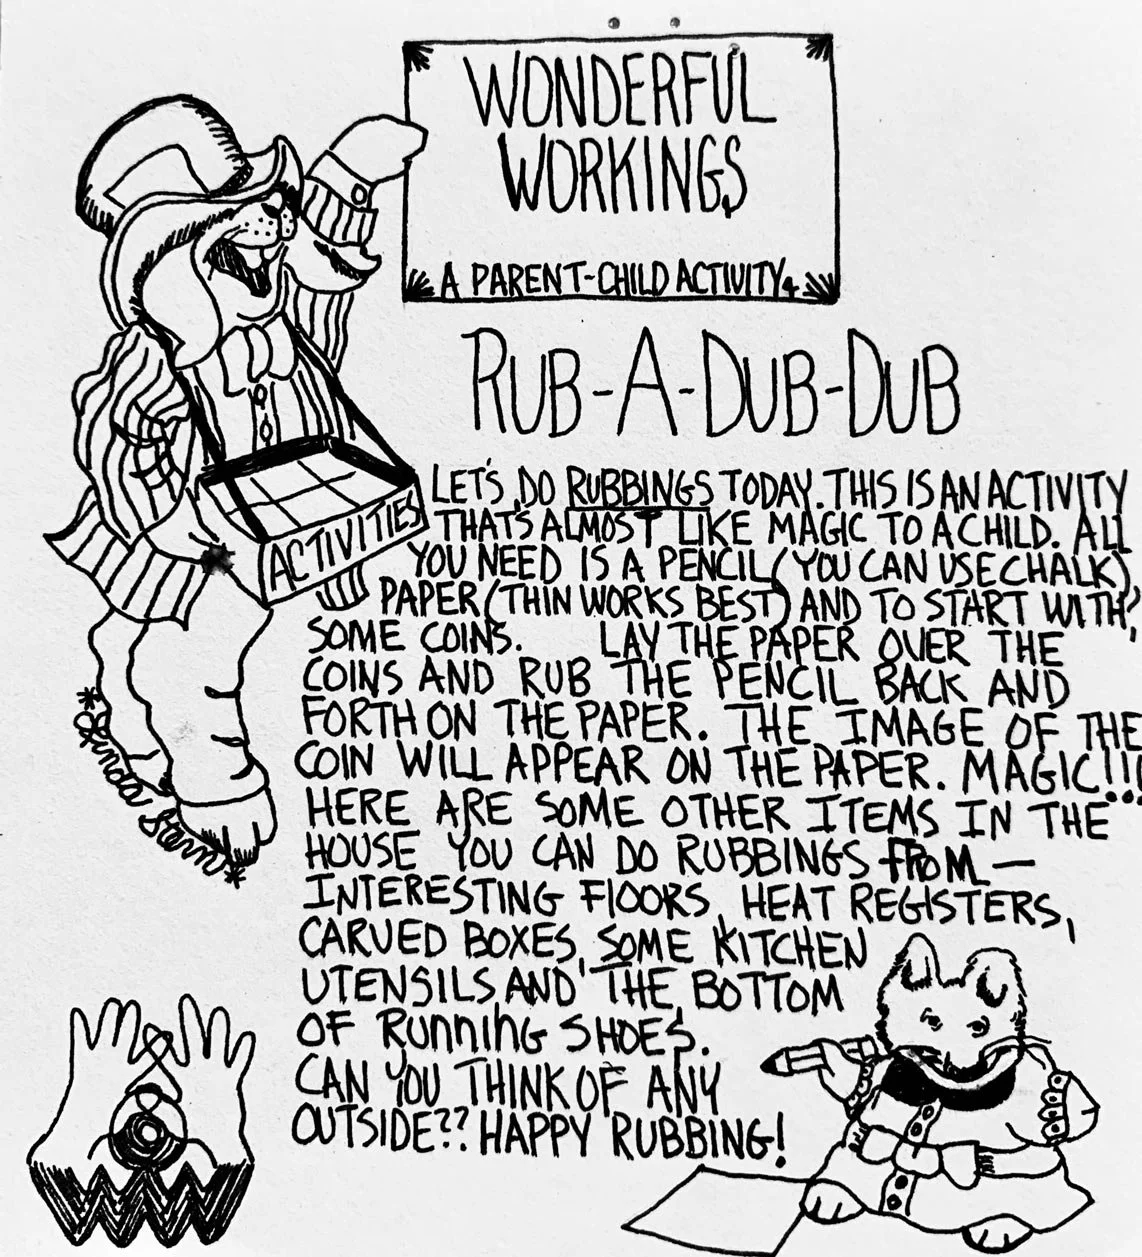 WONDERFUL
WORKINGS
A PARENT-CHILD ACTIVITY
RUB-A-DUB-DUB
LET'S DO RUBBINGS TODAY. THIS IS AN ACTIVITY
THAT'S ALMOST LIKE MAGIC TO A CHILD. ALL
YOU NEED IS A PENCIL (YOU CAN USE CHALK),
PAPER (THIN WORKS BEST) AND TO START WITH,
SOME COINS. LAY THE PAPER OVER THE
COINS AND RUB THE PENCIL BACK AND
FORTH ON THE PAPER. THE IMAGE OF THE
COIN WILL APPEAR ON THE PAPER. MAGIC!!!
HERE ARE SOME OTHER ITEMS IN THE
HOUSE YOU CAN DO RUBBINGS FROM —
INTERESTING FLOORS, HEAT REGISTERS,
CARVED BOXES, SOME KITCHEN
UTENSILS, AND THE BOTTOM
OF RUnnInG SHOES.
CAN YOU THINK OF ANY
OUTSIDE?? HAPPY RUBBING!
ACTIVITIES
*Linda Stern*
WW